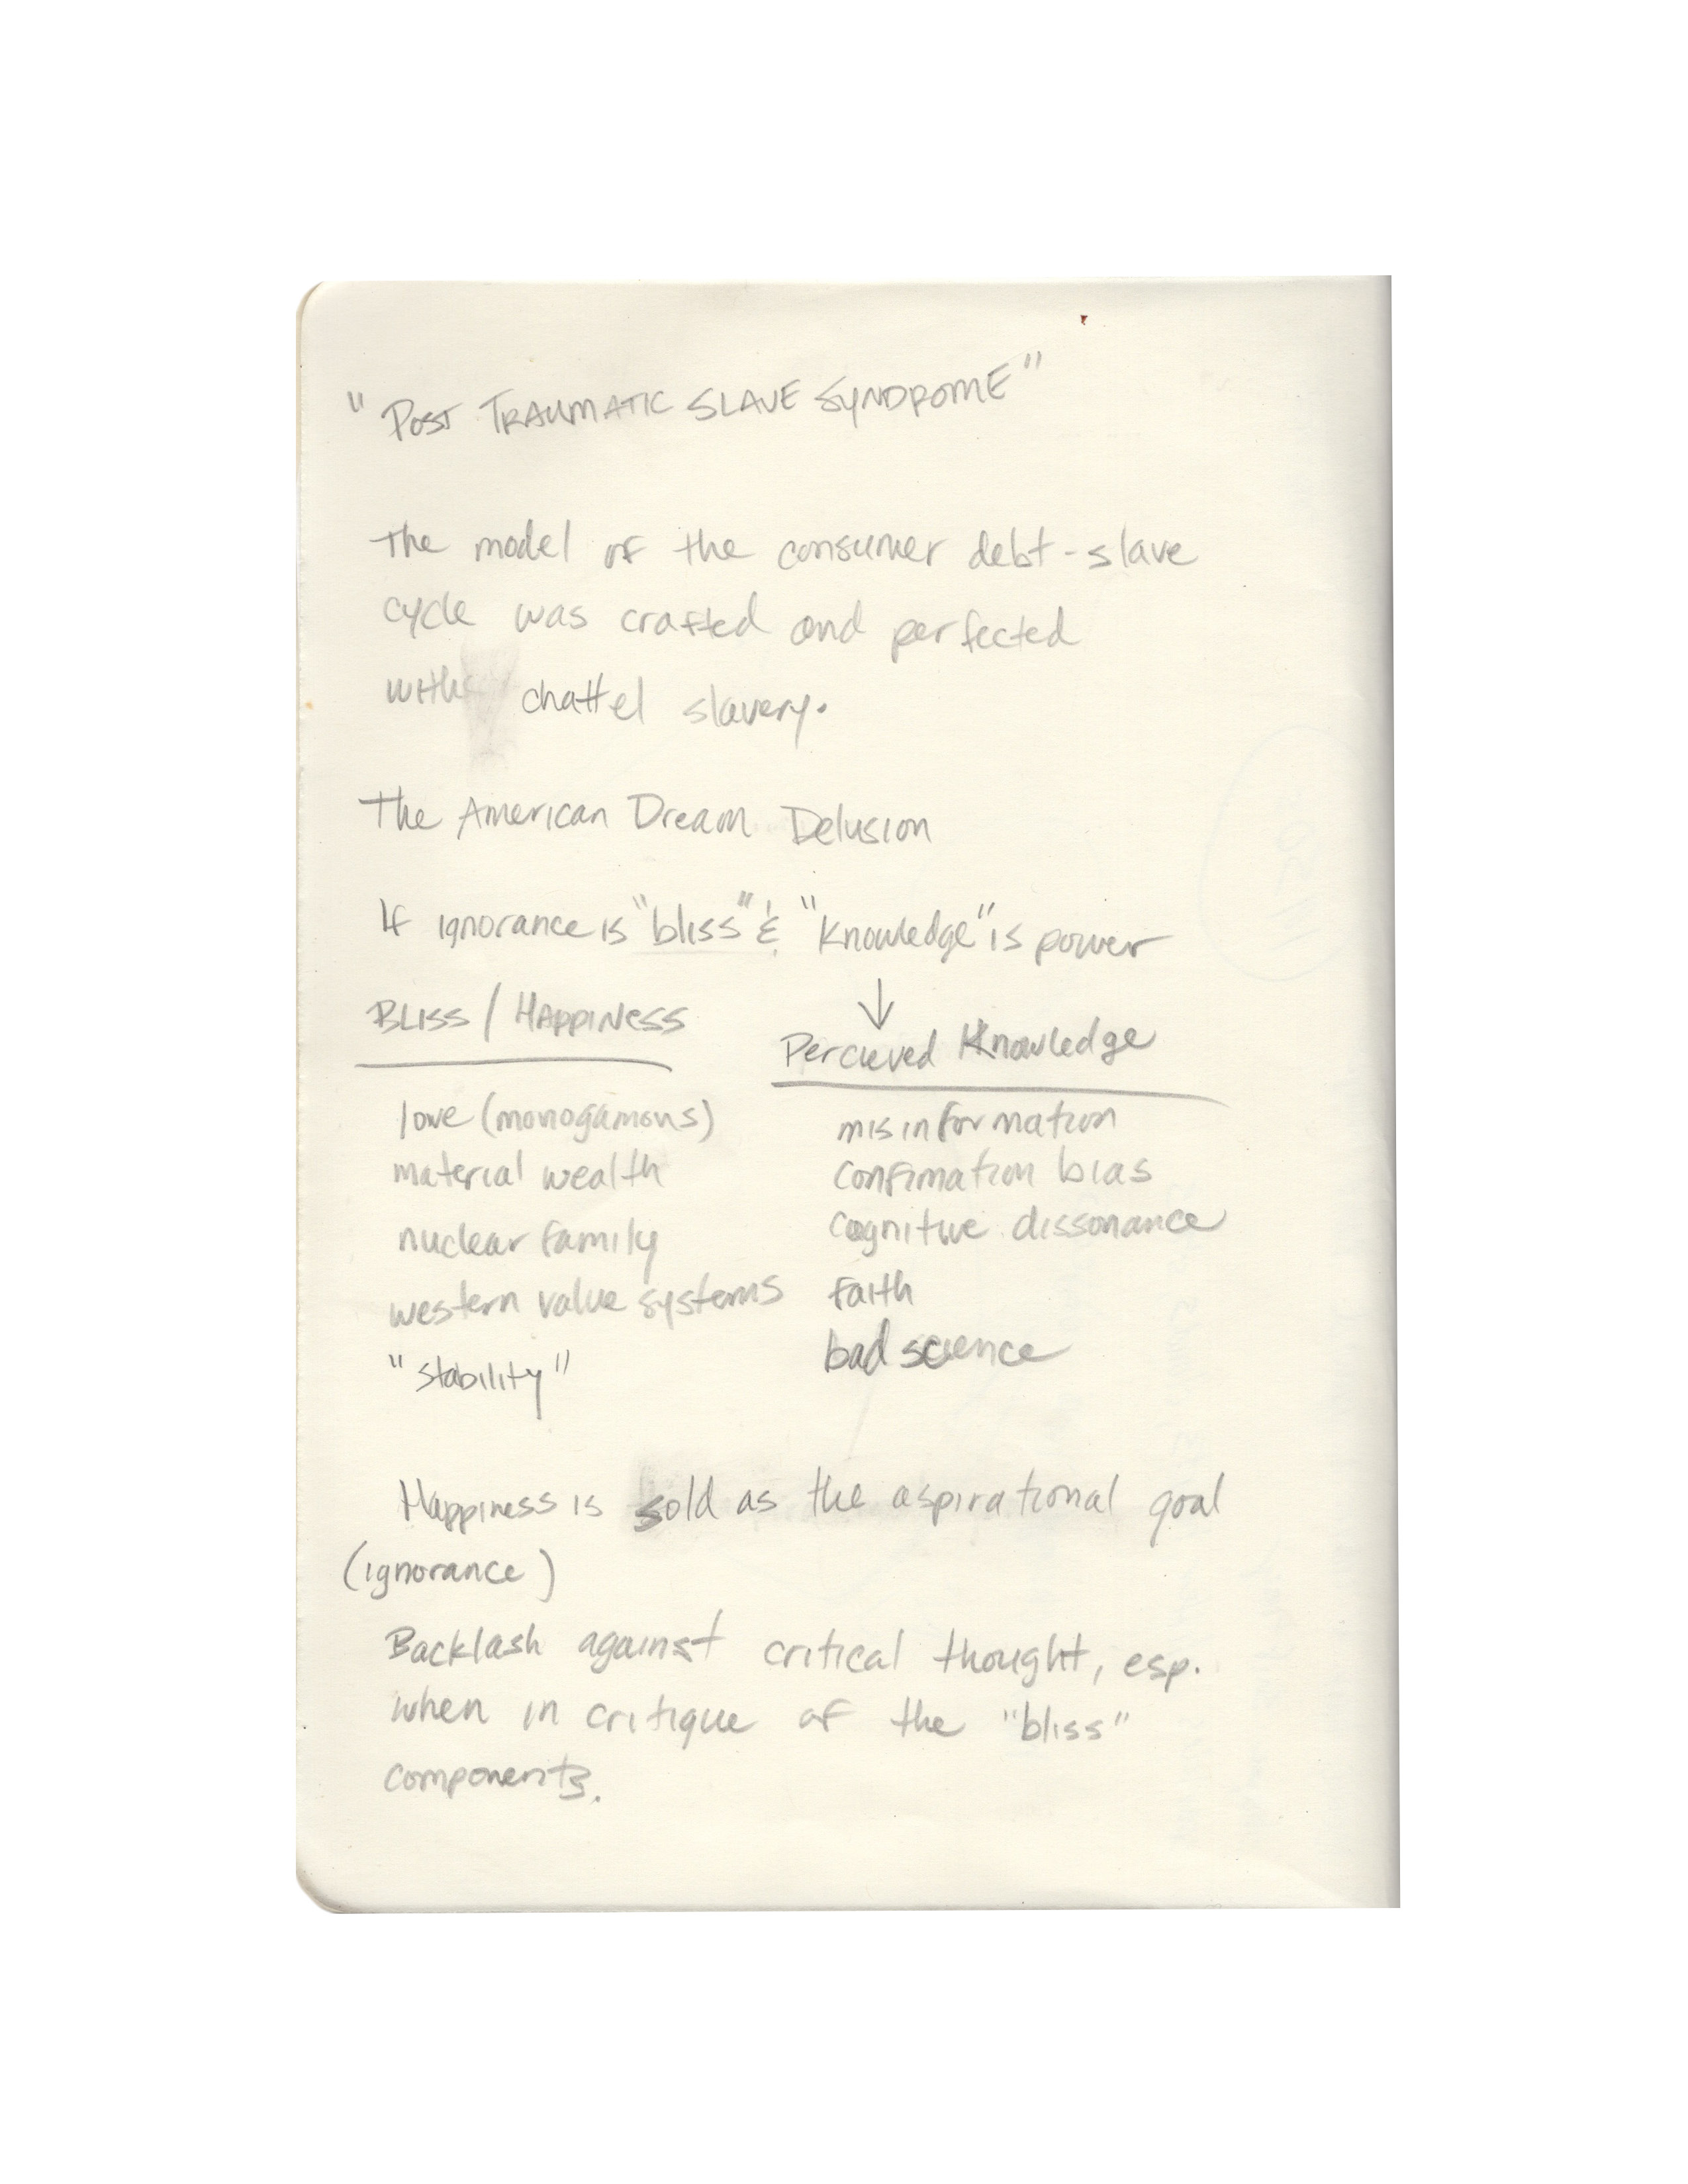 "POST TRAUMATIC SLAVE SYNDROME"
The model of the consumer debt-slave
cycle was crafted and perfected
with chattel slavery.
The American Dream Delusion
If ignorance is "bliss" & "knowledge" is power
BLISS / HAPPINESS
↓
Percieved Knowledge
love (monogamous)
material wealth
nuclear family
western value systems
"stability"
misinformation
confimation bias
cognitive dissonance
faith
bad science
Happiness is sold as the aspirational goal
(ignorance)
Backlash against critical thought, esp.
when in critique of the "bliss"
components.